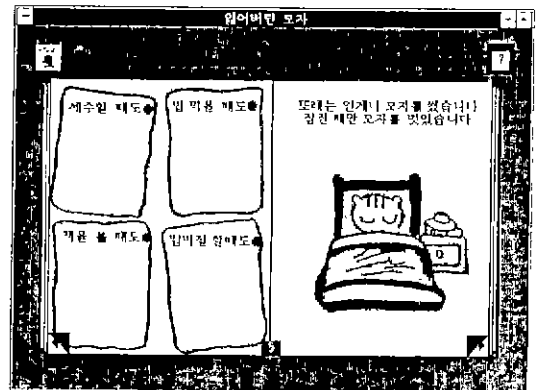 잃어버린 모자
?
세수할 때도
밥 먹을 때도
책을 볼 때도
할때도
또래는 언제나 모자를 썼습니다
잠잘 때만 모자를 벗었습니다